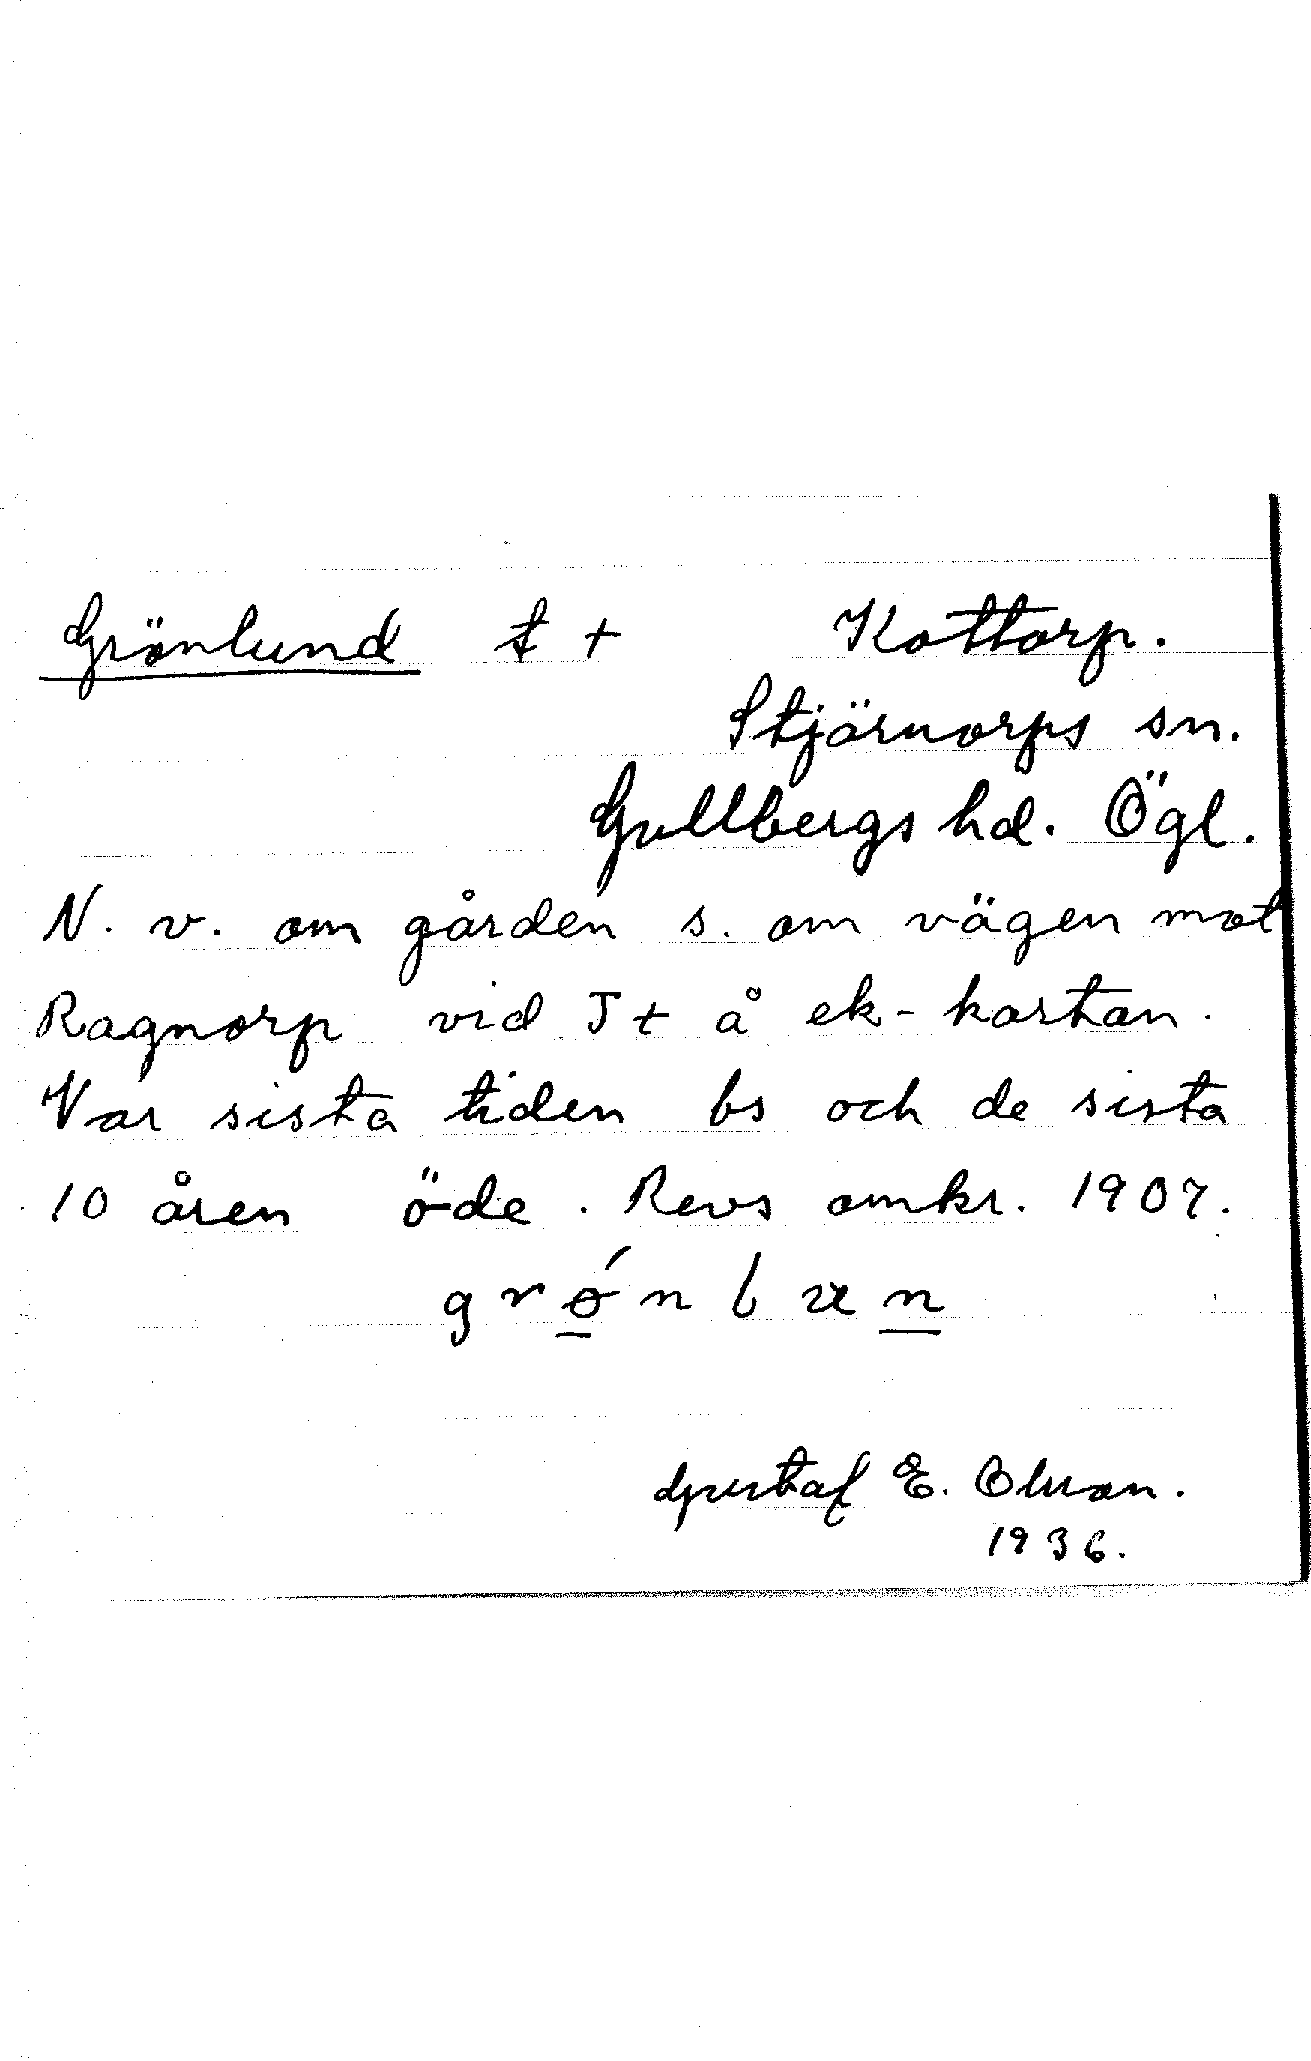 Grönlund t + Kottorp.
Stjärnorps sn.
Gullbergs hd. Ögl.
N. v. om gården s. om vägen mot
Ragnorp vid T t å ek-kartan.
Var sista tiden bs och de sista
10 åren öde. Revs omkr. 1907.
grǿnlun
Gustaf E. Olsson.
1936.